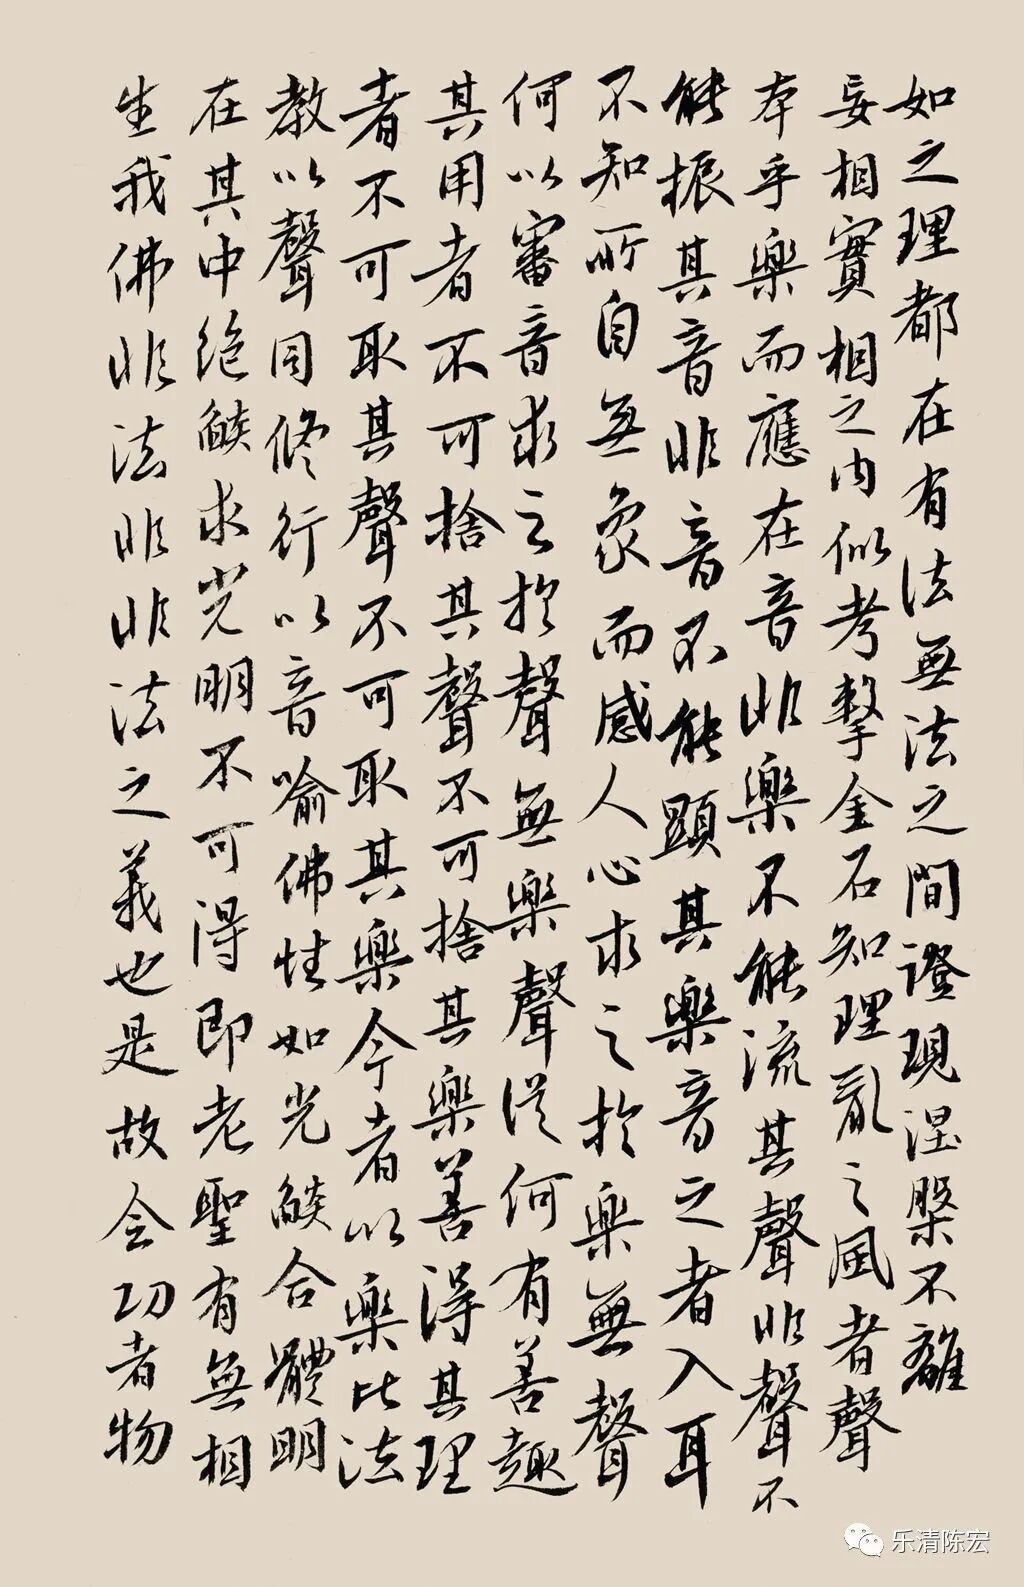 如之理都在有法無法之間證現涅槃不離
妄相實相之内似考擊金石知理亂之風者聲
本乎樂而應在音非樂不能流其聲非聲不
能振其音非音不能顯其樂音之者入耳
不知所自無象而感人心求之於樂無聲
何以審音求之於聲無樂聲從何有善趣
其用者不可捨其聲不可捨其樂善得其理
者不可取其聲不可取其樂今者以樂比法
教以聲同修行以音喻佛性如光燄合體明
在其中絶燄求光明不可得即老聖有無相
生我佛非法非非法之義也是故会功者物
乐清陈宏